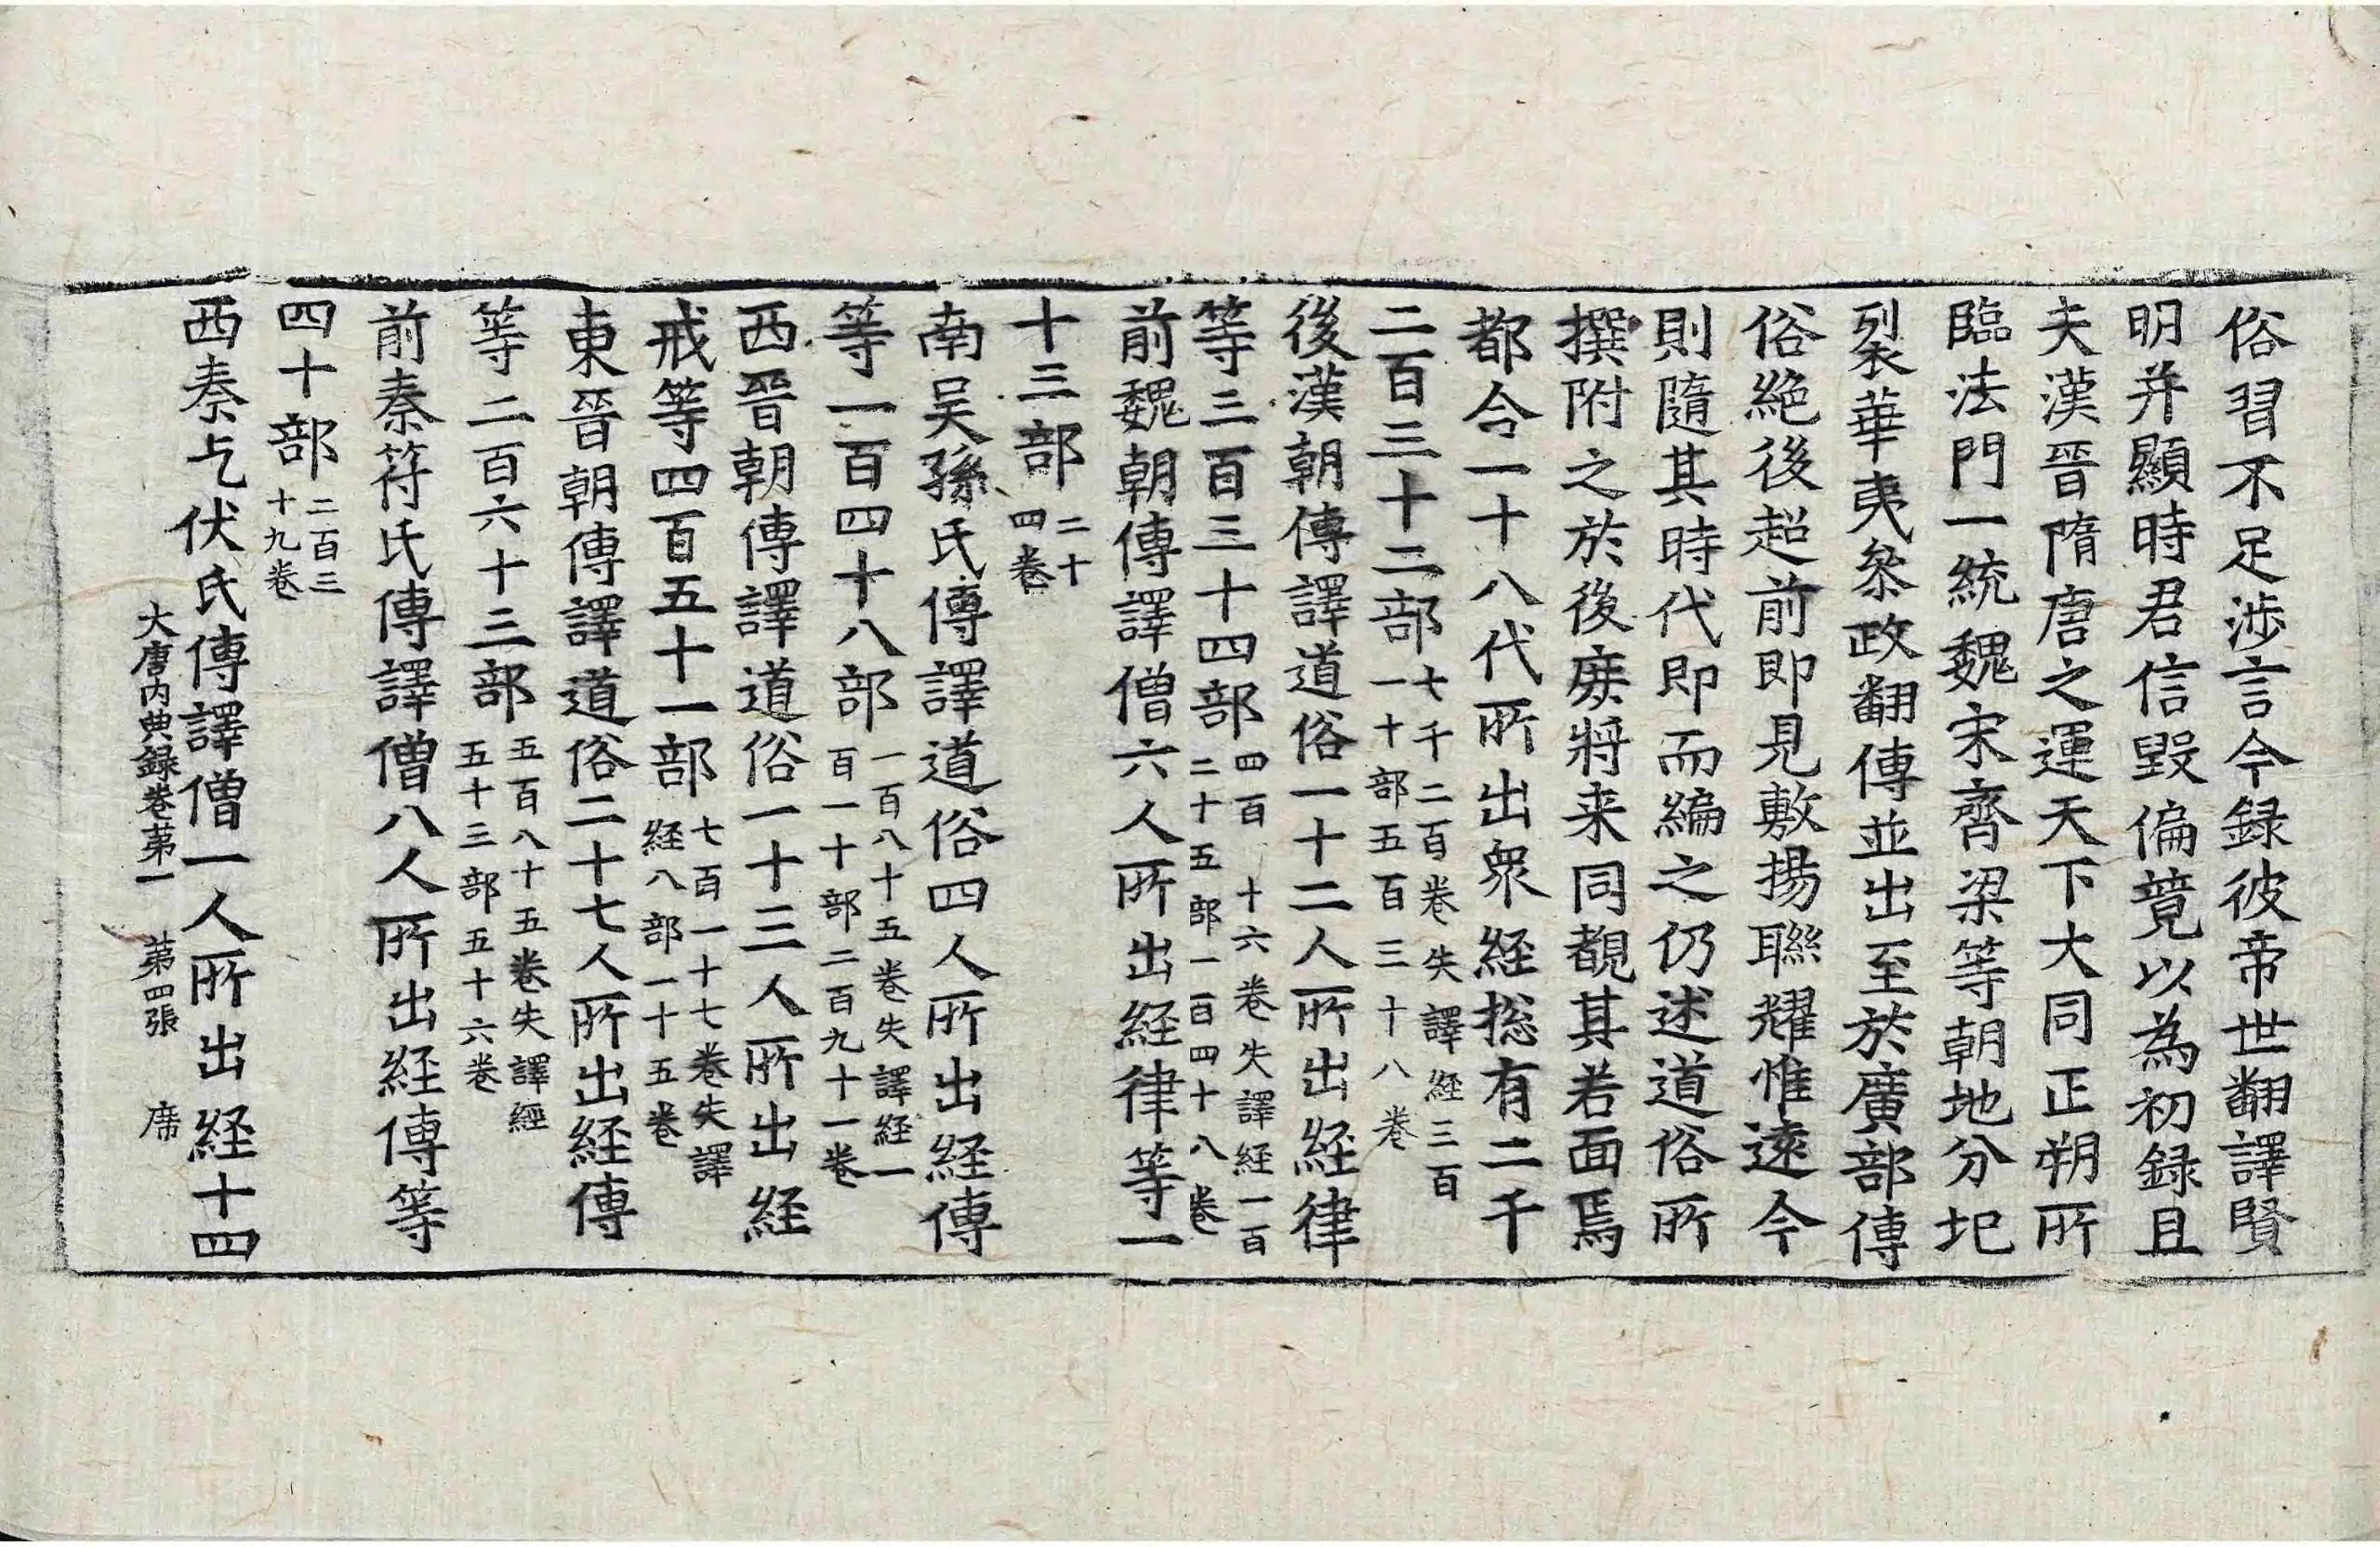 俗習不足渉言今録彼帝世翻譯賢
明并顯時君信毀偏競以為初録且
夫漢晉隋唐之運天下大同正朔所
臨法門一統魏宋齊梁等朝地分圮
裂華夷叅政翻傳並出至於廣部傳
俗絶後超前即見敷揚聯耀惟遠今
則隨其時代即而編之仍述道俗所
撰附之於後庻將来同覩其若面焉
都合一十八代所出衆経捴有二千
二百三十二部七千二百卷失譯経三百
一十部五百三十八卷
後漢朝傳譯道俗一十二人所出経律
等三百三十四部四百一十六卷失譯経一百
二十五部一百四十八卷
前魏朝傳譯僧六人所出経律等一
十三部二十
四卷
南吴孫氏傳譯道俗四人所出経傳
等一百四十八部一百八十五卷失譯経一
百一十部二百九十一卷
西晉朝傳譯道俗一十三人所出経
戒等四百五十一部七百一十七卷失譯
経八部一十五卷
東晉朝傳譯道俗二十七人所出経傳
等二百六十三部五百八十五卷失譯經
五十三部五十六卷
前秦苻氏傳譯僧八人所出経傳等
四十部二百三
十九卷
西秦乞伏氏傳譯僧一人所出経十四
大唐内典録卷苐一　苐四張　席